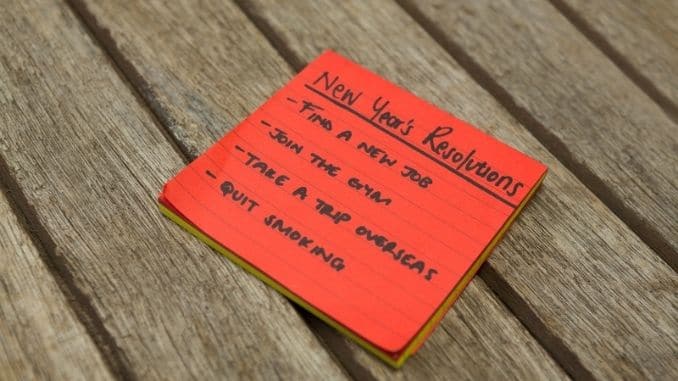 New Year's Resolutions
- FIND A NEW JOB
- JOIN THE GYM
- TAKE A TRIP OVERSEAS
- QUIT SMOKING